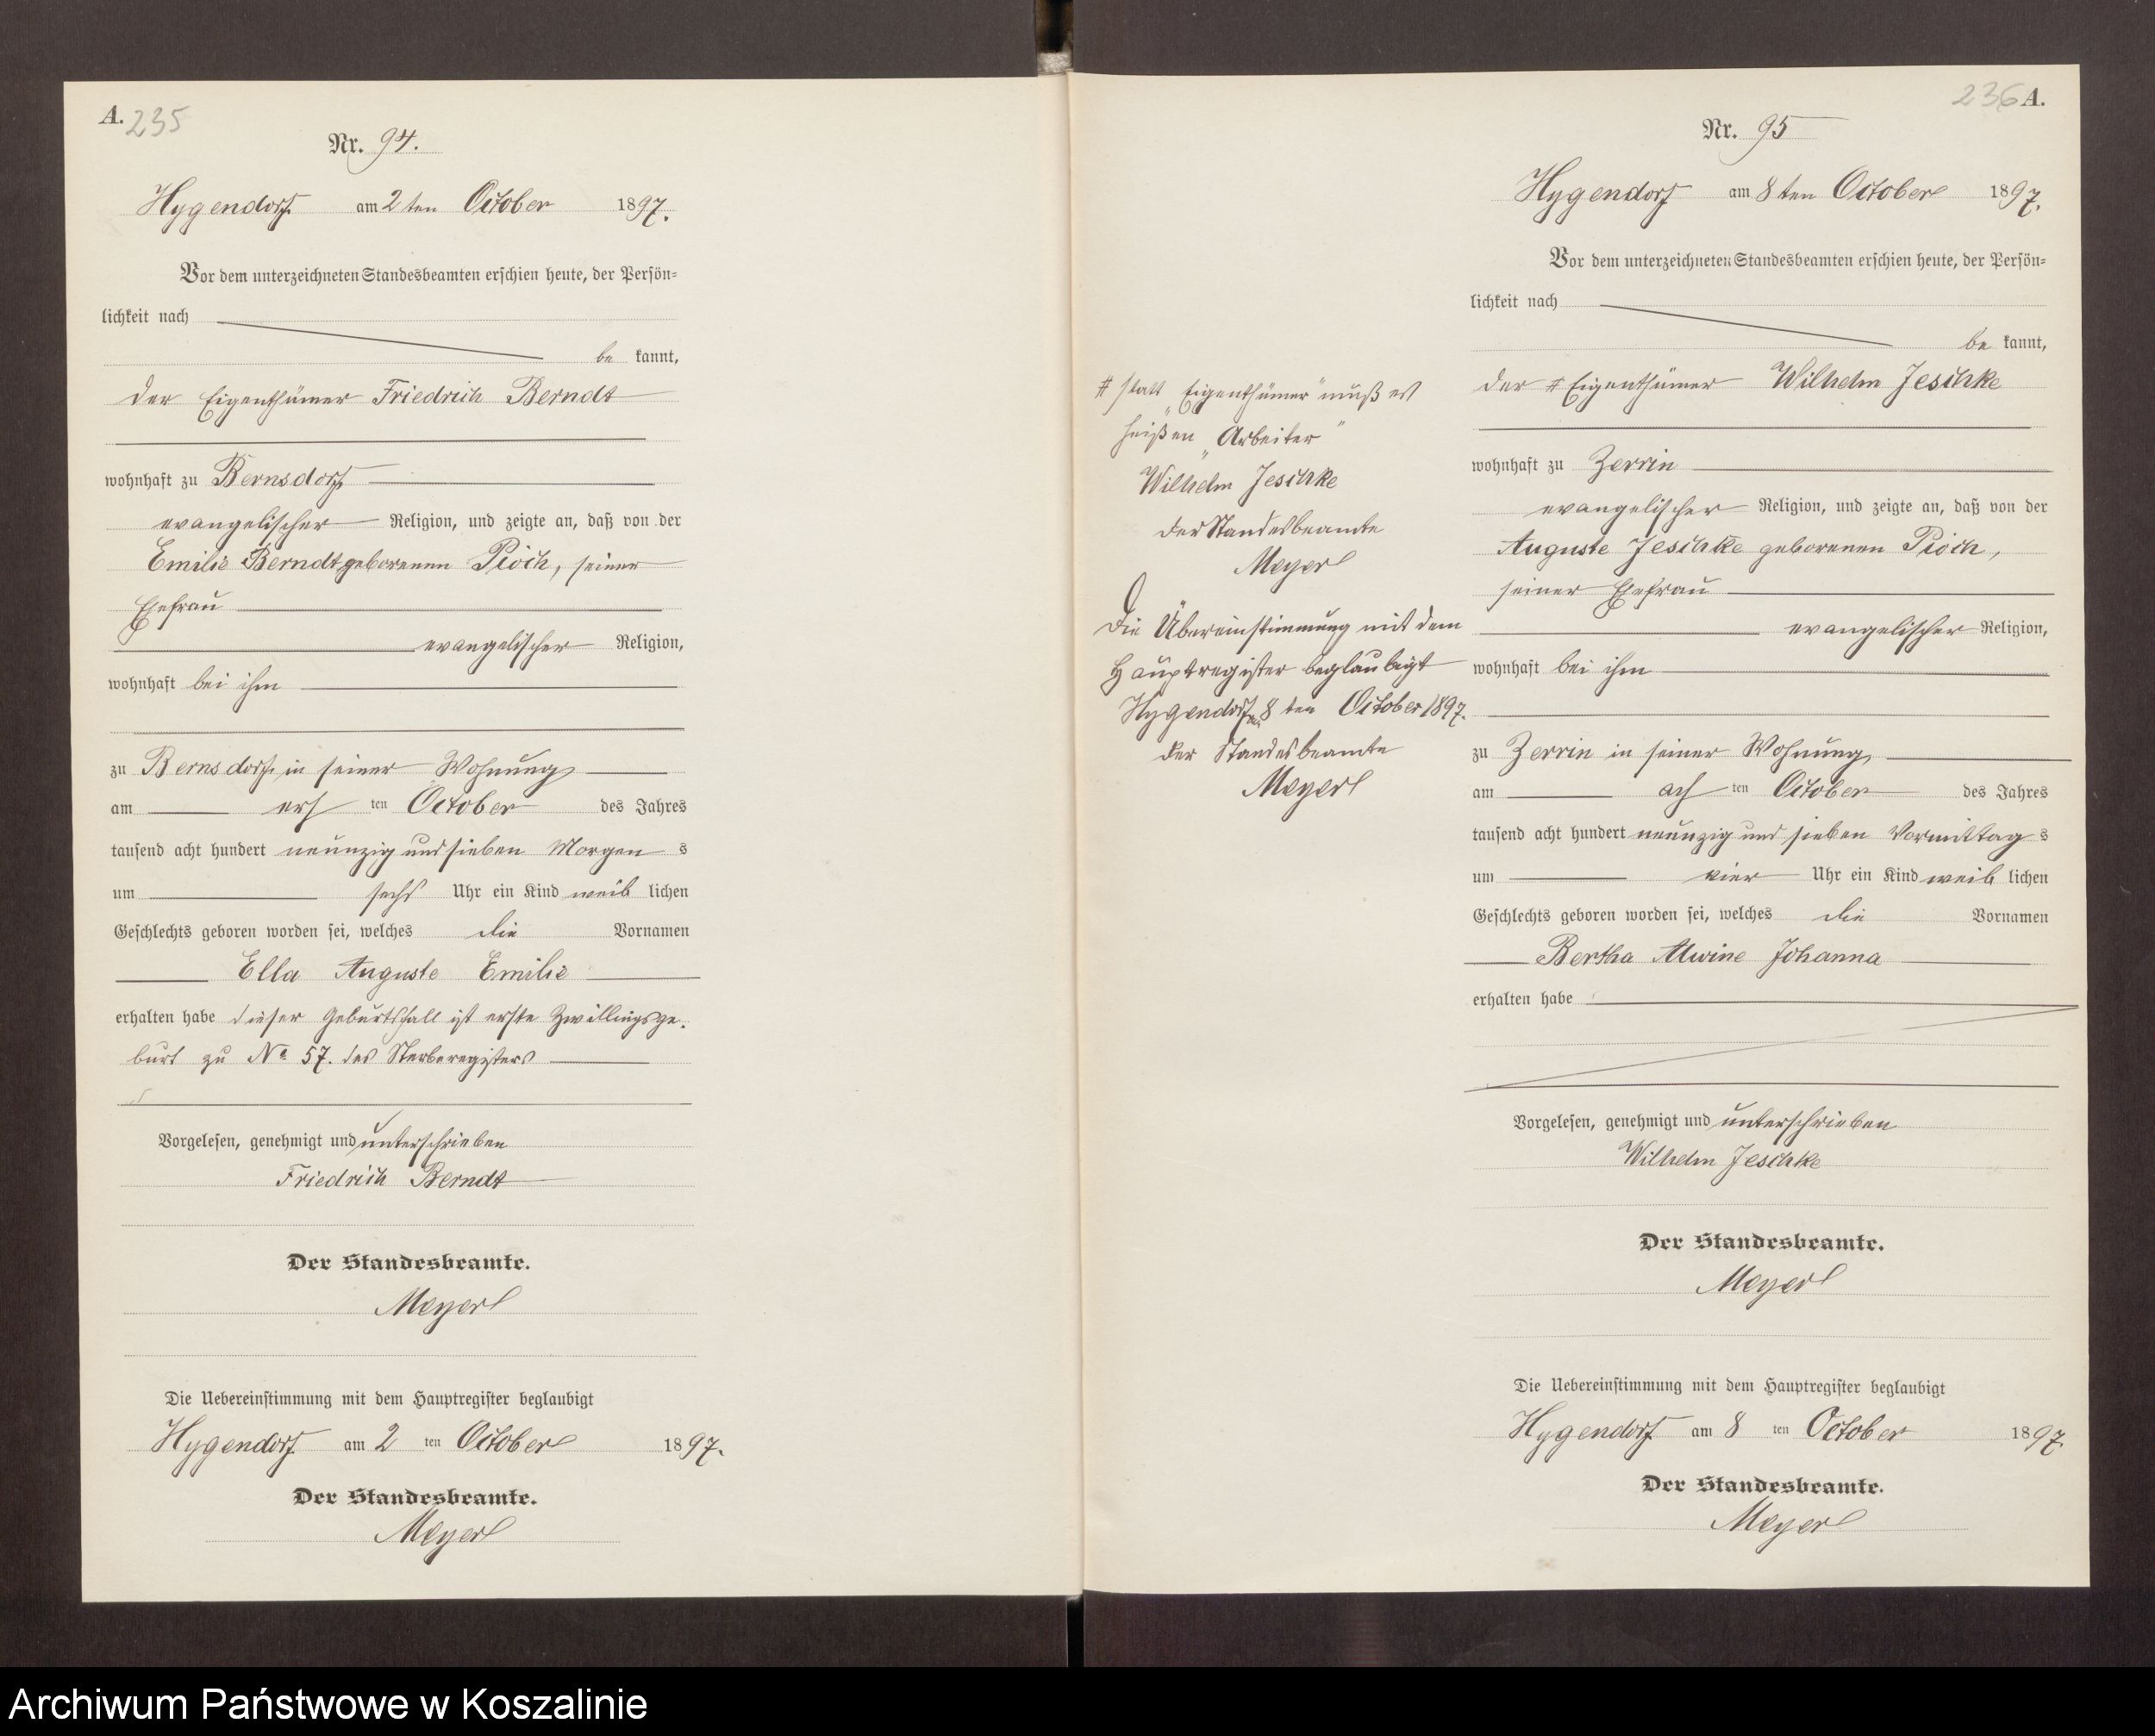 A. 235
Nr. 94.
Hygendorf am 2 ten October 1897.
Vor dem unterzeichneten Standesbeamten erschien heute, der Persön-
lichkeit nach
be kannt,
der Eigenthümer Friedrich Berndt
wohnhaft zu Bernsdorf
evangelischer Religion, und zeigte an, daß von der
Emilie Berndt geborenen Pioch, seiner
Ehefrau
evangelischer Religion,
wohnhaft bei ihm
zu Bernsdorf in seiner Wohnung
am ers ten October des Jahres
tausend acht hundert neunzig und sieben Morgen s
um sechs Uhr ein Kind weib lichen
Geschlechts geboren worden sei, welches die Vornamen
Ella Auguste Emilie
erhalten habe dieser Geburtsfall ist erste Zwillingsge-
burt zu No 57. des Sterberegisters
Vorgelesen, genehmigt und unterschrieben
Friedrich Berndt
Der Standesbeamte.
Meyer
Die Uebereinstimmung mit dem Hauptregister beglaubigt
Hygendorf am 2 ten October 1897.
Der Standesbeamte.
Meyer
# statt „Eigenthümer" muß es
heißen „Arbeiter"
Wilhelm Jeschke
der Standesbeamte
Meyer
Die Übereinstimmung mit dem
Hauptregister beglaubigt
Hygendorf am 8 ten October 1897.
der Standesbeamte
Meyer
236 A.
Nr. 95
Hygendorf am 8 ten October 1897.
Vor dem unterzeichneten Standesbeamten erschien heute, der Persön-
lichkeit nach
be kannt,
der # Eigenthümer Wilhelm Jeschke
wohnhaft zu Zerrin
evangelischer Religion, und zeigte an, daß von der
Auguste Jeschke geborenen Pioch,
seiner Ehefrau
evangelischer Religion,
wohnhaft bei ihm
zu Zerrin in seiner Wohnung,
am ach ten October des Jahres
tausend acht hundert neunzig und sieben Vormittag s
um vier Uhr ein Kind weib lichen
Geschlechts geboren worden sei, welches die Vornamen
Bertha Alwine Johanna
erhalten habe
Vorgelesen, genehmigt und unterschrieben
Wilhelm Jeschke
Der Standesbeamte.
Meyer
Die Uebereinstimmung mit dem Hauptregister beglaubigt
Hygendorf am 8 ten October 1897
Der Standesbeamte.
Meyer
Archiwum Państwowe w Koszalinie